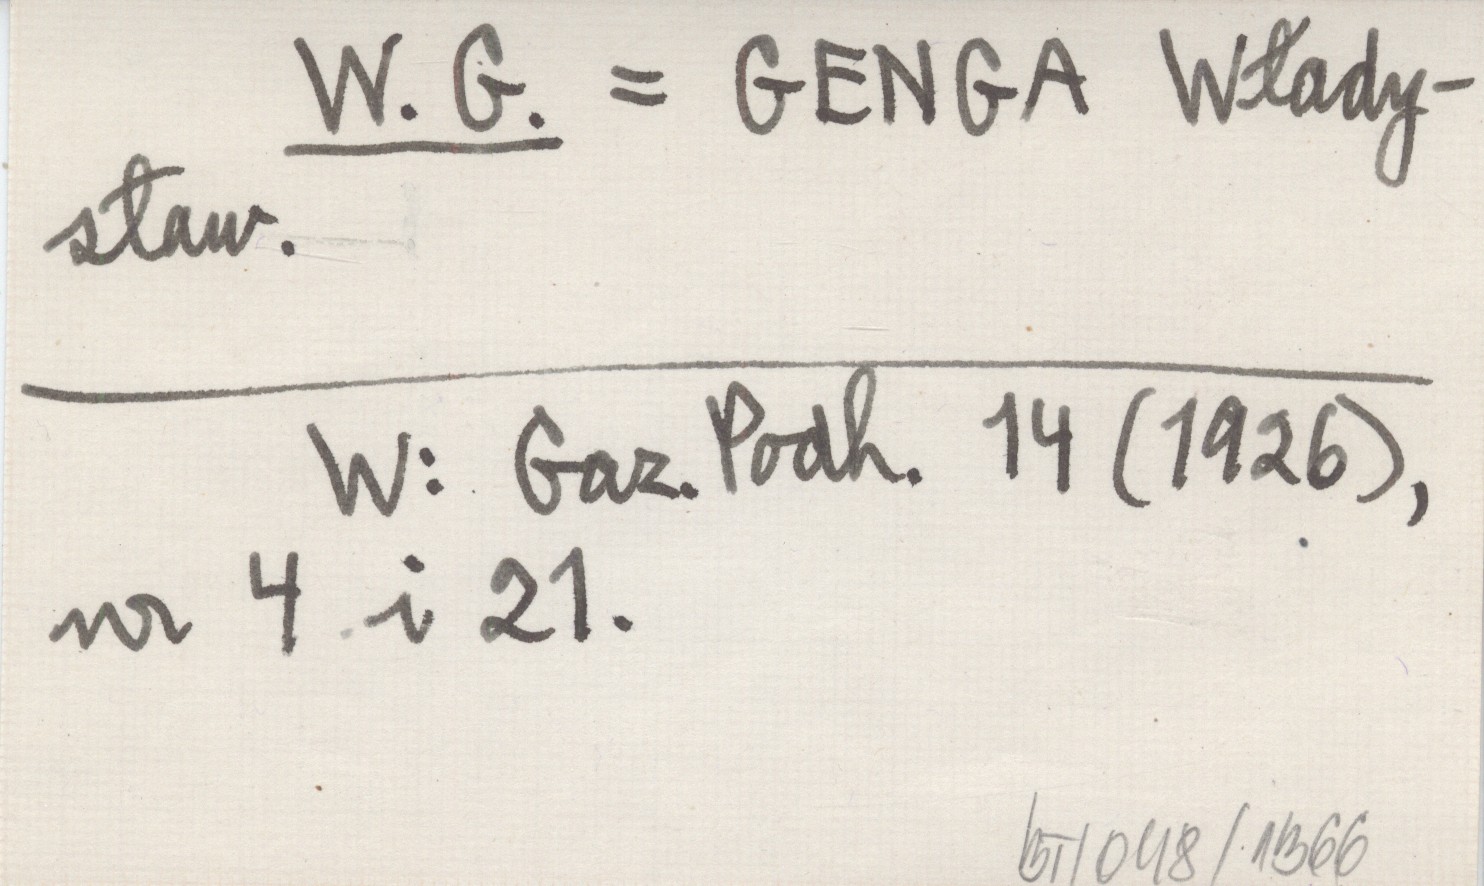 W. G. = GENGA Włady-
sław.
W: Gaz. Podh. 14 (1926),
nr 4 i 21.
/048/1366